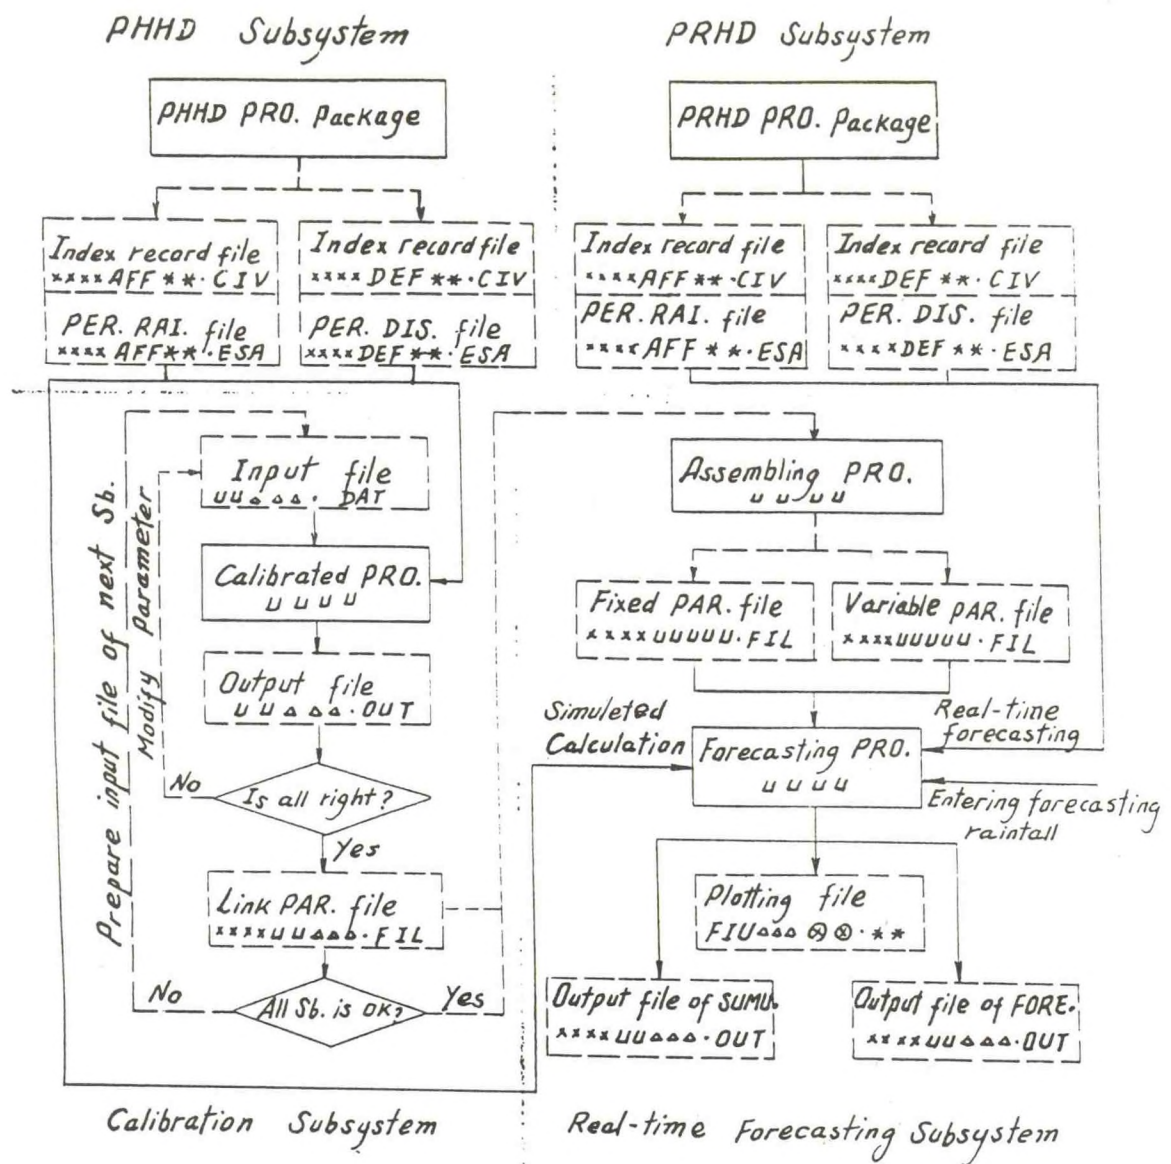 PHHD Subsystem
PRHD Subsystem
PHHD PRO. Package
PRHD PRO. Package
Index record file
××××AFF **·CIV
PER. RAI. file
××××AFF**·ESA
Index record file
××××DEF **·CIV
PER. DIS. file
××××DEF **·ESA
Index record file
××××AFF **·CIV
PER. RAI. file
××××AFF **·ESA
Index record file
××××DEF **·CIV
PER. DIS. file
××××DEF **·ESA
Prepare input file of next Sb.
Modify Parameter
Input file
⊔⊔△△△· DAT
Calibrated PRO.
⊔⊔⊔⊔
Output file
⊔⊔△△△·OUT
Is all right?
No
Yes
Link PAR. file
××××⊔⊔△△△·FIL
All Sb. is OK?
No
Yes
Assembling PRO.
⊔⊔⊔⊔
Fixed PAR. file
××××⊔⊔⊔⊔⊔·FIL
Variable PAR. file
××××⊔⊔⊔⊔⊔·FIL
Simuleted
Calculation
Forecasting PRO.
⊔⊔⊔⊔
Real-time
forecasting
Entering forecasting
raintall
Plotting file
FIU△△△⊗⊗·**
Output file of SUMU.
××××⊔⊔△△△·OUT
Output file of FORE.
××××⊔⊔△△△·OUT
Calibration Subsystem
Real-time Forecasting Subsystem